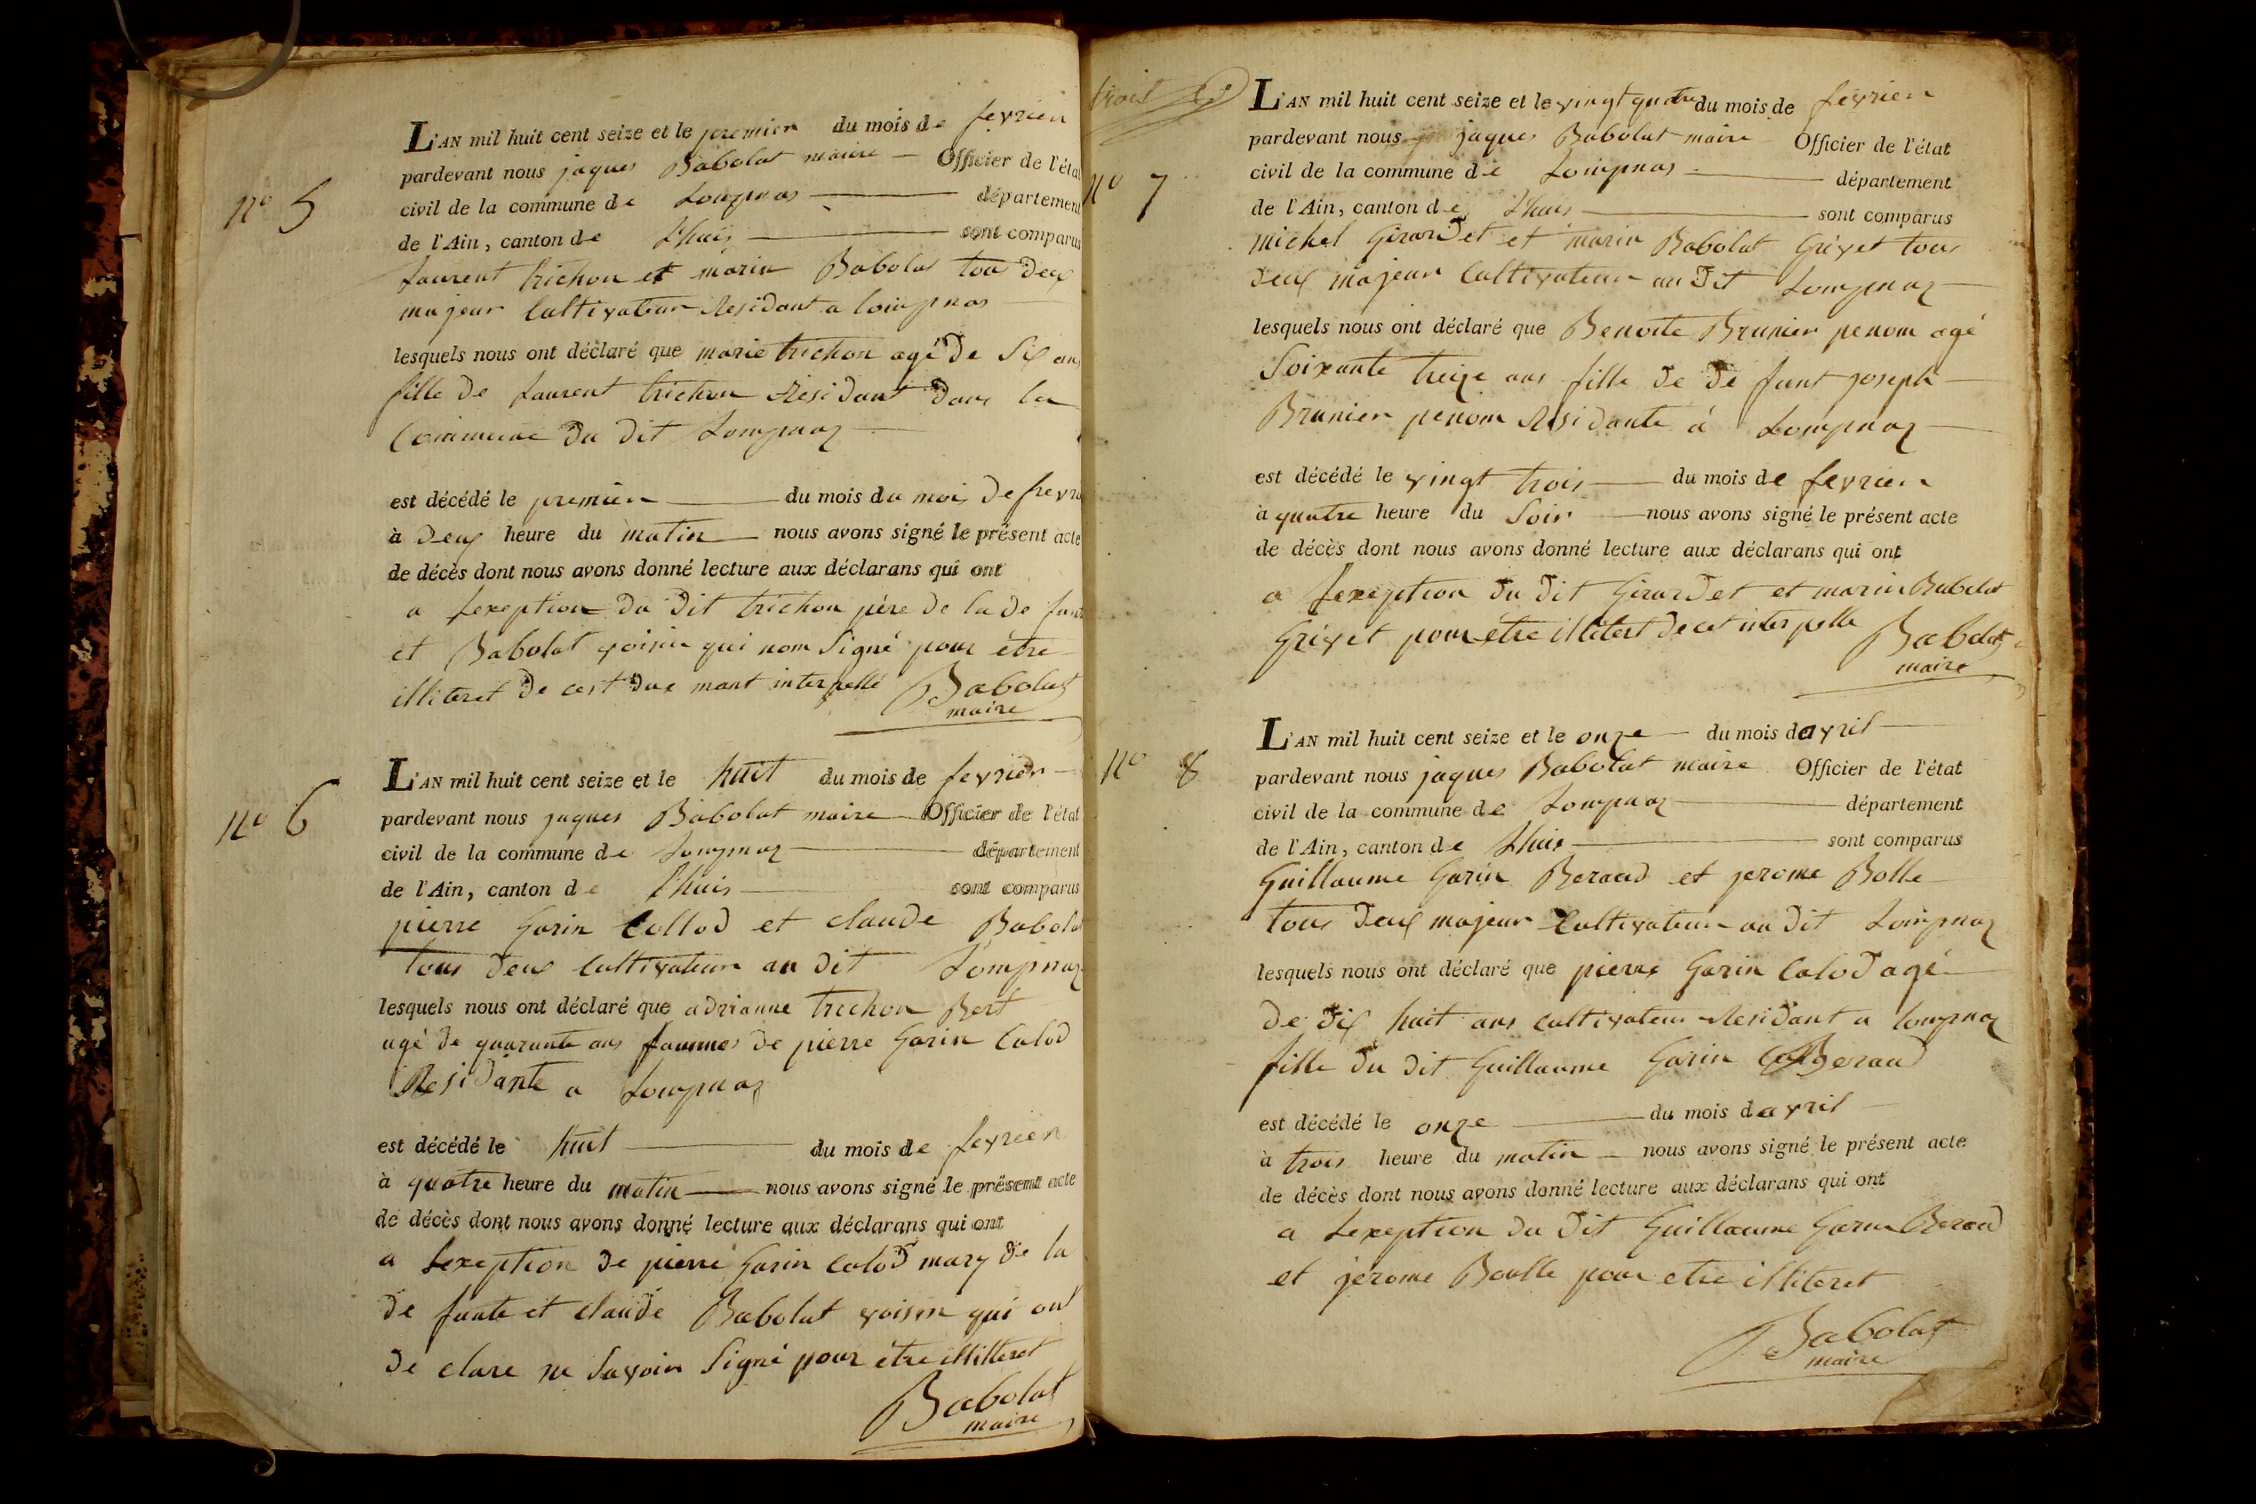 L'AN mil huit cent seize et le premier du mois de fevrier
pardevant nous jaques Babolat maire Officier de l'état
civil de la commune de Lompnas département
nº 5
de l'Ain, canton de Lhuis sont comparus
Laurent trichon et marin Babolat tou deux
majeur Cultivateur Residant a lompnas
lesquels nous ont déclaré que marie trichon agé de Six ans
fille de Laurent trichon Residant dans la
Commune du dit Lompnaz
est décédé le premier du mois du mois de fevri
à deux heure du matin nous avons signé le présent acte
de décès dont nous avons donné lecture aux déclarans qui ont
a Lexeption du dit trichon père de la de funt
et Babolat voisin qui nom Signé pour etre
illiteret de ces due mant interpellé Babolat
maire
L'AN mil huit cent seize et le huit du mois de fevrier
nº 6
pardevant nous jaques Babolat maire Officier de l'état
civil de la commune de Lompnaz département
de l'Ain, canton de Lhuis sont comparus
pierre Garin Collod et claude Babolat
tous deux Cultivateur au dit Lompnaz
lesquels nous ont déclaré que adrianne trichon Bert
agé de quarante ans faumes de pierre Garin Calod
Residante a Lompnaz
est décédé le huit du mois de fevrier
à quatre heure du matin nous avons signé le présent acte
de décès dont nous avons donné lecture aux déclarans qui ont
a Lexeption de pierre Garin Calod mary de la
de funte et claude Babolat voisin qui ont
de clare ne Savoir Signé pour être illitteret
Babolat
maire
trois
L'AN mil huit cent seize et le vingt quatre du mois de fevrier
pardevant nous jaques Babolat maire Officier de l'état
civil de la commune de Lompnas département
nº 7
de l'Ain, canton de Lhuis sont comparus
michel Girardet et marin Babolat Grivet tous
deux majeur Cultivateur au dit Lompnaz
lesquels nous ont déclaré que Benoite Brunier penom agé
Soixante treize ans fille de de funt joseph
Brunier penom Residante á Lompnaz
est décédé le vingt trois du mois de fevrier
à quatre heure du Soir nous avons signé le présent acte
de décès dont nous avons donné lecture aux déclarans qui ont
a Lexeption du dit Girardet et marin Babolat
Grivet pour être illiteret de cet interpelle Babolat
maire
L'AN mil huit cent seize et le onze du mois davril
nº 8
pardevant nous jaques Babolat maire Officier de l'état
civil de la commune de Lompnaz département
de l'Ain, canton de Lhuis sont comparus
Guillaume Garin Beraud et jerome Bolle
tous deux majeur Cultivateur au dit Lompnaz
lesquels nous ont déclaré que pierre Garin Calod agé
de dix huit ans cultivateur Residant a lompnaz
fille du dit Guillaume Garin Beraud
est décédé le onze du mois davril
à trois heure du matin nous avons signé le présent acte
de décès dont nous avons donné lecture aux déclarans qui ont
a Lexeption du dit Guillaume Garin Beraud
et jerome Boulle pour etre illiteret
Babolat
maire